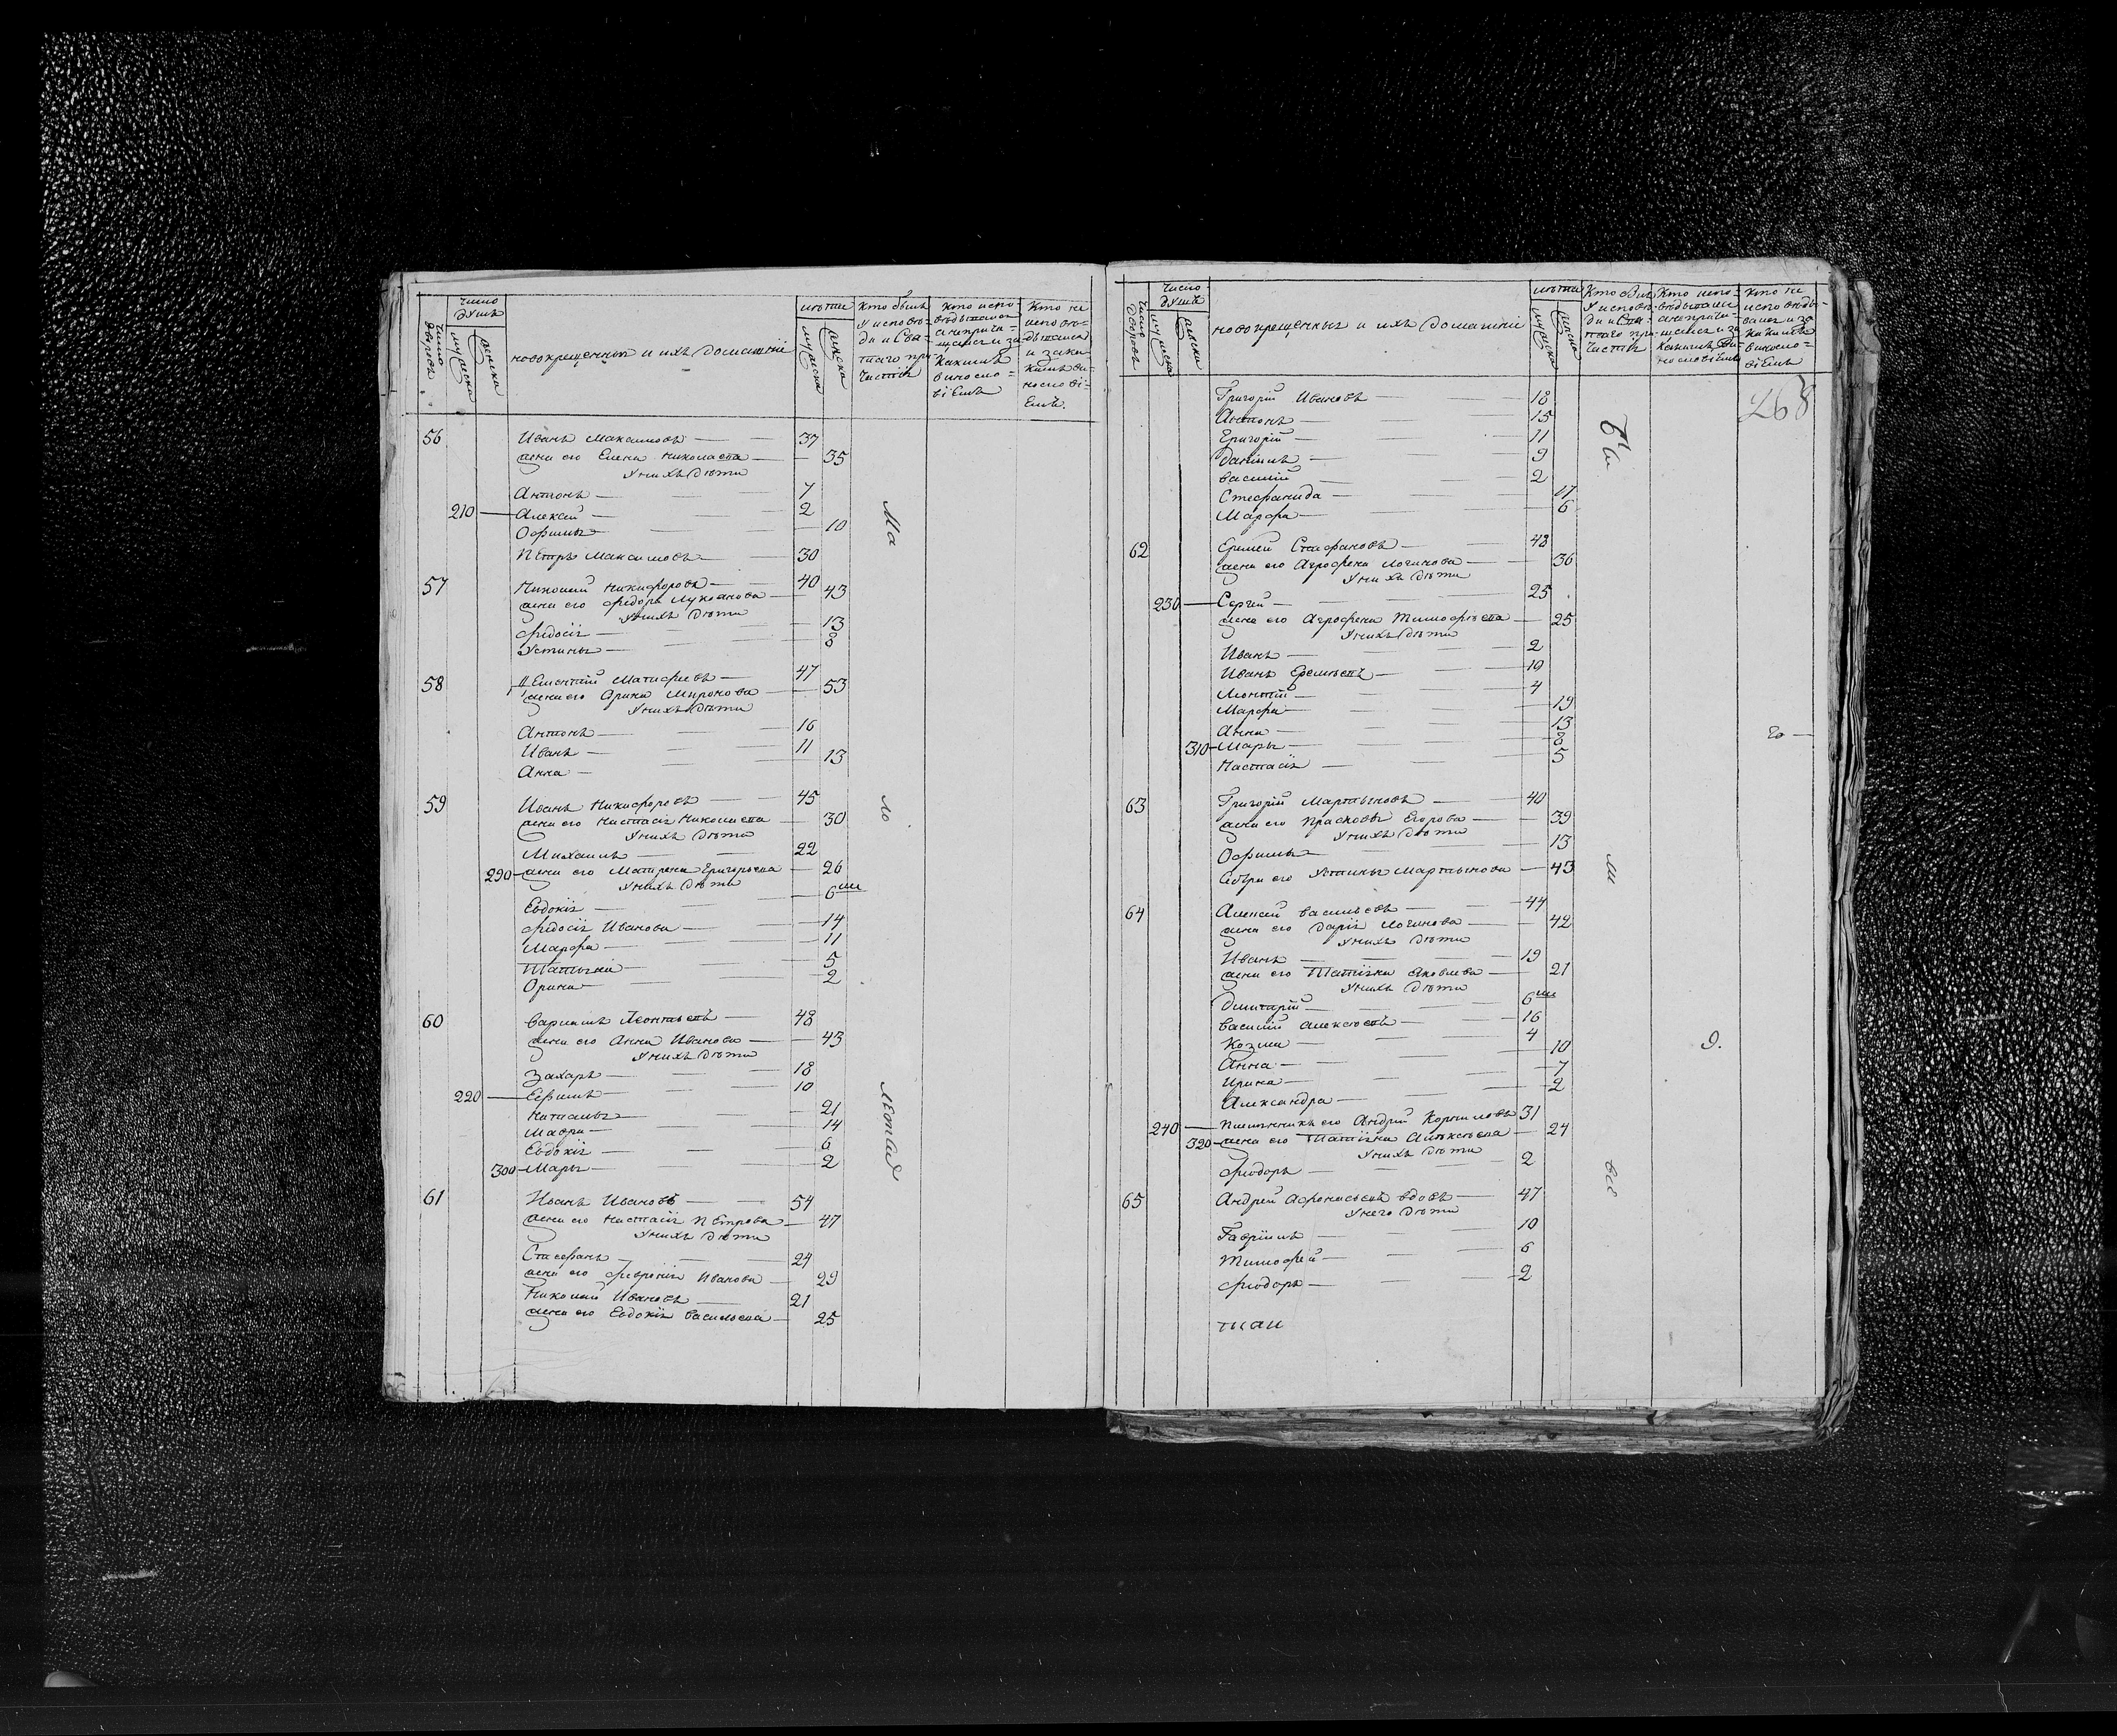 Число дворовъ
Число душъ
мужеска
женска
новокрещенныя и ихъ домашнiе
лѣта
мужеска
женска
Кто былъ у исповѣди и Святаго причастiя
Кто исповѣдывался а не причащался и за какимъ винословiемъ
Кто не исповѣдывался и за какимъ винословiемъ.
56 Иванъ Максимовъ 37
жена его Елена Николаева 35
У нихъ дѣти
Антонъ 7
210 Алексѣй 2
Офимья 10
Петръ Максимовъ 30
57 Николай Никифоровъ 40
жена его Федора Лукоянова 43
У нихъ дѣти
Федосiя 13
Устинья 8
58 Матвѣевъ 47
жена его Орина Миронова 53
У нихъ дѣти
Антонъ 16
Иванъ 11
Анна 13
59 Иванъ Никифоровъ 45
жена его Настасiя Николаева 30
У нихъ дѣти
Михаилъ 22
290 жена его Матрена Григорьева 26
У нихъ дѣти
Евдокiя 6
Федосiя Иванова 14
Марфа 11
Татьяна 5
Орина 2
60 Леонтьевъ 48
жена его Анна Иванова 43
У нихъ дѣти
Захаръ 18
220 Ефимъ 10
Наталья 21
Мавра 14
Евдокiя 6
300 Марья 2
61 Иванъ Ивановъ 54
жена его Настасiя Петрова 47
У нихъ дѣти
Стефанъ 24
жена его Феврония Иванова 29
Николай Ивановъ 21
жена его Евдокiя Васильева 25
Ма
ло
лѣтад
Число дворовъ
Число душъ
мужеска
женска
новокрещенныя и ихъ домашнiе
лѣта
мужеска
женска
Кто былъ у исповѣди и Святаго причастiя
Кто исповѣдывался а не причащался и за какимъ винословiемъ
Кто не исповѣдывался и за какимъ винословiемъ
268
Григорiй Ивановъ 18
Антонъ 15
Григорiй 11
Данiилъ 9
Василiй 2
Стефанида 17
Марфа 6
62 Еремей Стефановъ 48
жена его Агрофена Логинова 36
У нихъ дѣти
230 Сергей 25
жена его Агрофена Тимофѣева 25
У нихъ дѣти
Иванъ 2
Иванъ Еремѣевъ 10
Леонтiй 4
Марфа 19
Анна 13
310 Марья 8
Настасiя 5
63 Григорiй Мартыновъ 40
жена его Прасковья Егорова 39
У нихъ дѣти
Офимья 13
Сестра его Устинья Мартынова 43
64 Алексѣй Васильевъ 44
жена его Дарiя Логинова 42
У нихъ дѣти
Иванъ 19
жена его Татiяна Яковлева 21
У нихъ дѣти
Дмитрiй 6
Василiй Алексѣевъ 16
Козма 4
Анна 10
Ирина 7
Александра 2
240 Племянникъ его Андрей Корниловъ 31
320 жена его Татiяна Алѣксѣева 24
У нихъ дѣти
Федоръ 2
65 Андрей Афонасьевъ вдовъ 47
У него дѣти
Гаврiилъ 10
Тимофей 6
Федоръ 2